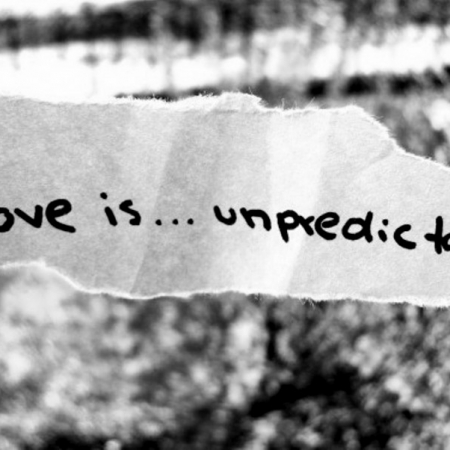 ove is... unpredicta